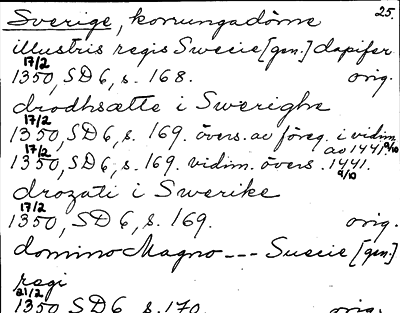 Sverige, konungadöme 25.
illustris regis Swecie [gen.] dapifer
17/2
1350, SD 6, s. 168. orig.
drodhsætte i Swerighe
17/2
1350, SD 6, s. 169. övers. av föreg. i vidim.
av 1441 9/10
17/2
1350, SD 6, s. 169. vidim. övers. 1441.
9/10
drozati i Swerike
17/2
1350, SD 6, s. 169. orig.
domino Magno --- Suecie [gen.]
regi
21/2
1350 SD 6 s. 170. orig.